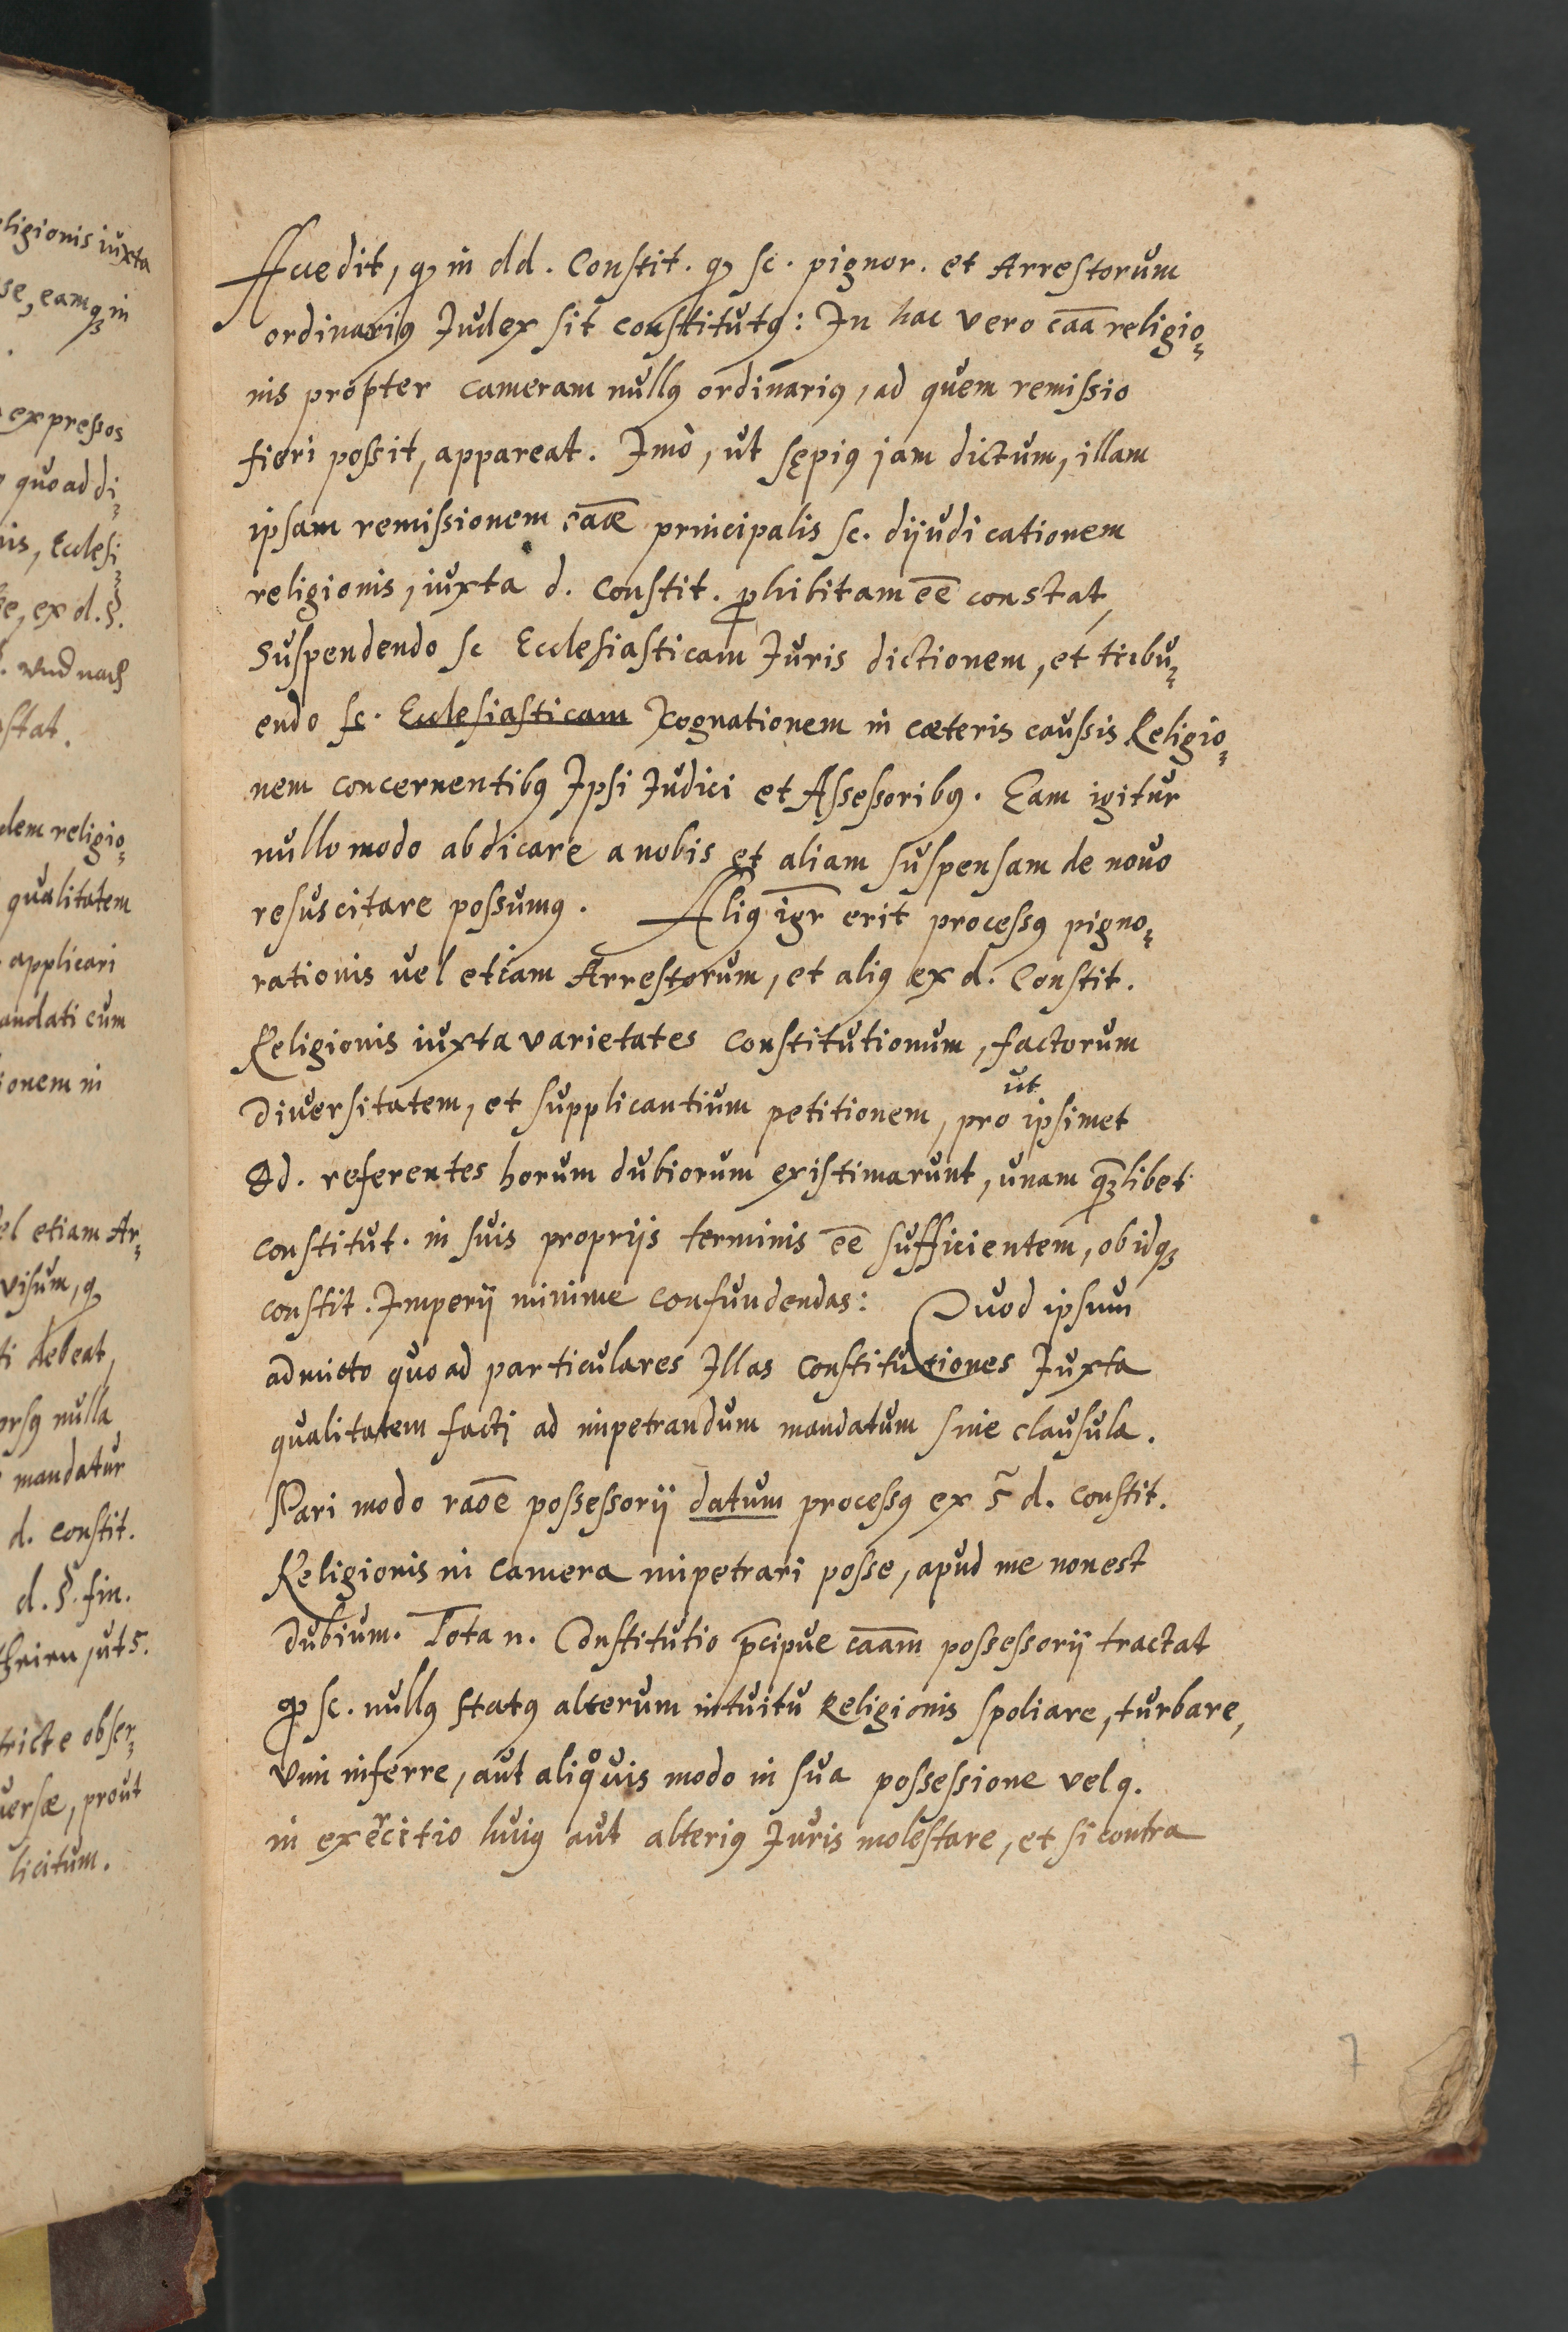 Accedit, qꝫ in dd. Constit. qꝫ sc. pignor. et Arrestorum
ordinariꝰ Iudex sit constitutꝰ: In hac vero caā religio⸗
nis propter cameram nullꝰ ordinariꝰ, ad quem remissio
fieri possit, appareat. Imò, ut sępiꝰ jam dictum, illam
ipsam remissionem cāæ principalis sc. dijudicationem
religionis, iuxta d. Constit. ꝓhibitam eē constat,
Suspendendo sc Ecclesiasticam Iuris dictionem, et tribu⸗
endo sc. Ecclesiasticam Cognationem in cæteris caussis Religio⸗
nem concernentibꝰ Ipsi Iudici et Assessoribꝰ. Eam igitur
nullo modo abdicare a nobis et aliam suspensam de novo
resuscitare possumꝰ. Aliꝰ igr̄ erit processꝰ pigno⸗
rationis vel etiam Arrestorum, et aliꝰ ex d. Constit.
Religionis iuxta varietates Constitutionum, factorum
Diversitatem, et supplicantium petitionem, pro ut ipsimet
Dd. referentes horum dubiorum existimarunt, unam qm̄libet
constitut. in suis proprijs terminis eē sufficientem, ob idqꝫ
constit. Imperij minime confundendas: Quod ipsum
admitto quo ad particulares Illas Constitutiones Iuxta
qualitatem facti ad impetrandum mandatum sine clausula.
Pari modo raoē possessorij datum processꝰ ex § d. Constit.
Religionis in Camera impetrari posse, apud me non est
dubium. Tota n. Constitutio p̄cipue caām possessorij tractat
qp sc. nullꝰ statꝰ alterum intuitu Religionis spoliare, turbare,
Vim inferre, aut aliquis modo in sua possessione vel q.
in exercitio huiꝰ aut alteriꝰ Iuris molestare, et si contra
7